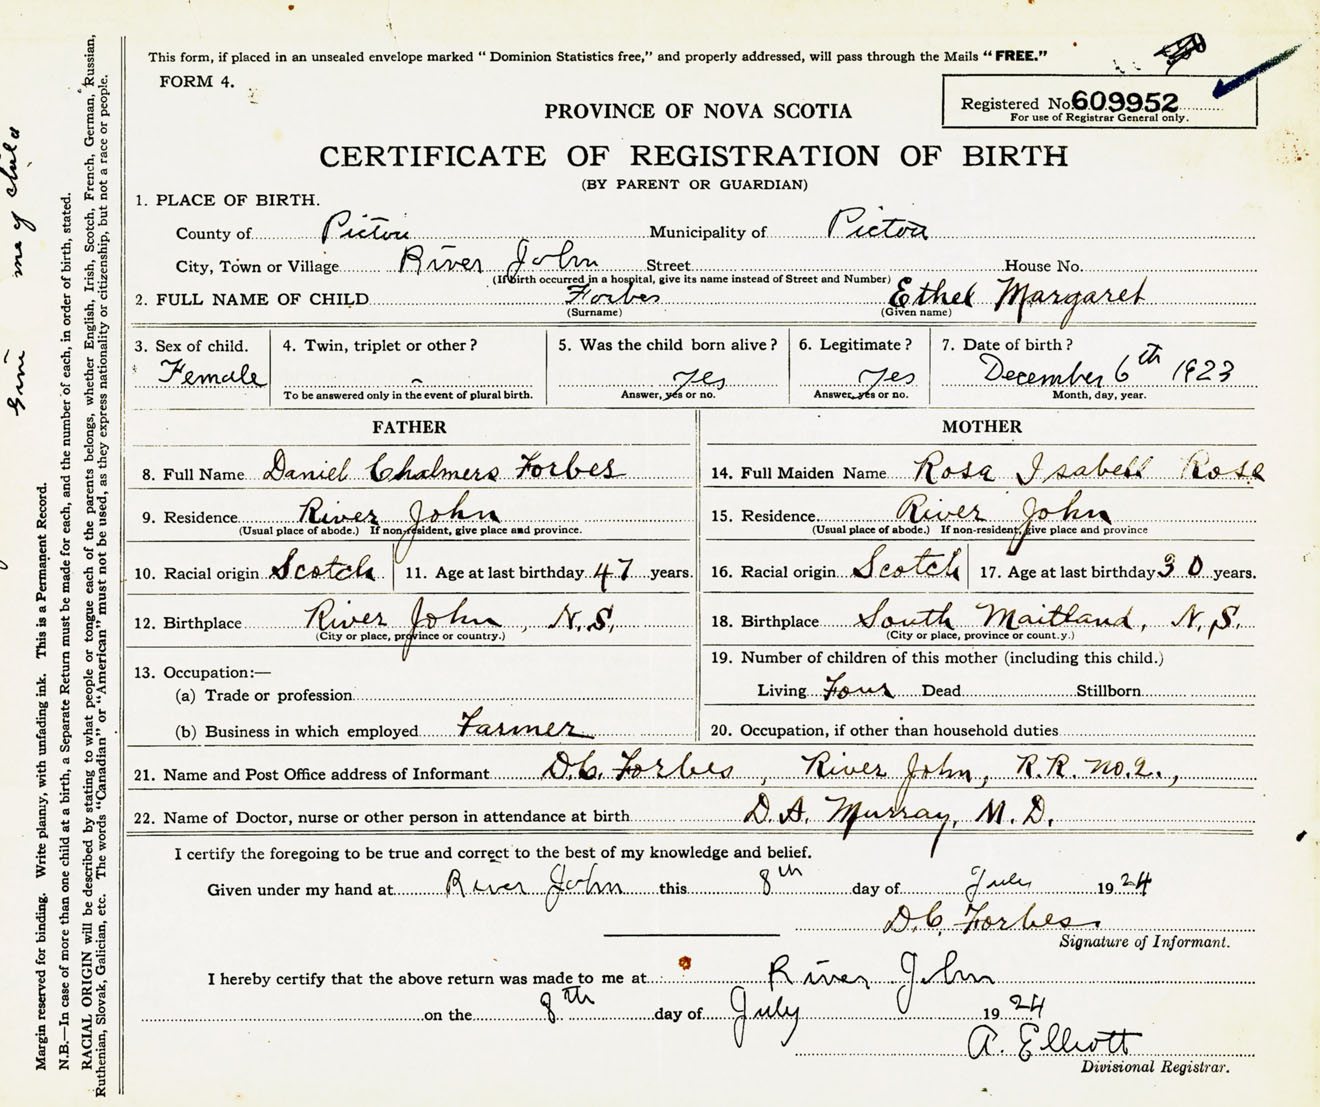 This form, if placed in an unsealed envelope marked “ Dominion Statistics free,” and properly addressed, will pass through the Mails “ FREE.”
FORM 4.
Registered No. 609952
For use of Registrar General only.
PROVINCE OF NOVA SCOTIA
CERTIFICATE OF REGISTRATION OF BIRTH
(BY PARENT OR GUARDIAN)
1. PLACE OF BIRTH.
County of Pictou Municipality of Pictou
City, Town or Village River John Street House No.
(If birth occurred in a hospital, give its name instead of Street and Number)
2. FULL NAME OF CHILD Forbes Ethel Margaret
(Surname) (Given name)
3. Sex of child. 4. Twin, triplet or other ? 5. Was the child born alive ? 6. Legitimate ? 7. Date of birth ?
Female yes Yes December 6th 1923
To be answered only in the event of plural birth. Answer, yes or no. Answer, yes or no. Month, day, year.
FATHER
8. Full Name Daniel Chalmers Forbes
9. Residence River John
(Usual place of abode.) If non-resident, give place and province.
10. Racial origin Scotch 11. Age at last birthday 47 years.
12. Birthplace River John, N.S.
(City or place, province or country.)
13. Occupation:—
(a) Trade or profession
(b) Business in which employed Farmer
MOTHER
14. Full Maiden Name Rosa Isabell Rose
15. Residence River John
(Usual place of abode.) If non-resident, give place and province
16. Racial origin Scotch 17. Age at last birthday 30 years.
18. Birthplace South Maitland, N.S.
(City or place, province or count.y.)
19. Number of children of this mother (including this child.)
Living Four Dead Stillborn
20. Occupation, if other than household duties
21. Name and Post Office address of Informant D.C. Forbes, River John, R.R. No.2.,
22. Name of Doctor, nurse or other person in attendance at birth D.A. Murray, M.D.
I certify the foregoing to be true and correct to the best of my knowledge and belief.
Given under my hand at River John this 8th day of July 1924
D.C. Forbes
Signature of Informant.
I hereby certify that the above return was made to me at River John
on the 8th day of July 1924
A. Elliott
Divisional Registrar.
Margin reserved for binding. Write plainly, with unfading ink. This is a Permanent Record.
N.B.—In case of more than one child at a birth, a Separate Return must be made for each, and the number of each, in order of birth, stated.
RACIAL ORIGIN will be described by stating to what people or tongue each of the parents belongs, whether English, Irish, Scotch, French, German, Russian,
Ruthenian, Slovak, Galician, etc. The words “Canadian” or “American” must not be used, as they express nationality or citizenship, but not a race or people.
of child